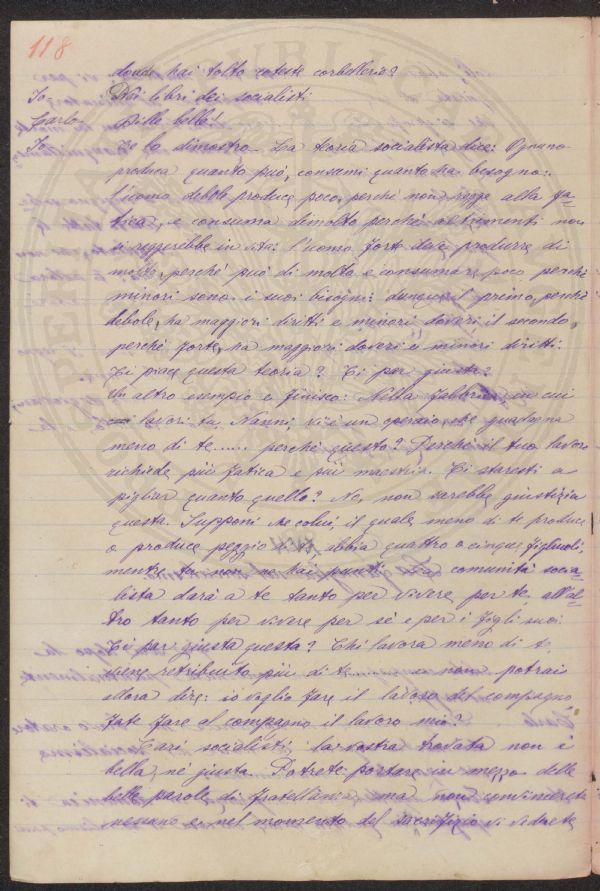 118
donde hai tolto coteste corbellerie?
Io. Dai libri dei socialisti
Carlo. Belle belle!
Io. Te lo dimostro. La teoria socialista dice: Ognuno
produca quanto può, consumi quanto ha bisogno:
l'uomo debole produce poco, perché non regge alla fa-
tica, e consuma dimolto perché altrimenti non
si reggerebbe in vita: l'uomo forte deve produrre di
molto, perché può di molto e consumare poco perché
minori sono i suoi bisogni: dunque il primo, perché
debole, ha maggiori diritti e minori doveri, il secondo,
perché forte, ha maggiori doveri e minori diritti.
Ti piace questa teoria? Ti par giusta?
Un altro esempio e finisco: Nella fabbrica in cui
lavori tu, Nanni, vi è un operaio, che guadagna
meno di te...... perché questo? Perché il tuo lavoro
richiede più fatica e più maestria. Ti staresti a
pigliar quanto quello? No, non sarebbe giustizia
questa. Supponi che colui, il quale meno di te produce
o produce peggio di te, abbia quattro o cinque figliuoli,
mentre tu non ne hai punti. La comunità socia-
lista darà a te tanto per vivere per te, all'al-
tro tanto per vivere per sé e per i figli suoi
Ti par giusta questa? Chi lavora meno di te,
viene retribuito più di te...... e non potrai
allora dire: io voglio fare il lavoro del compagno
fate fare al compagno il lavoro mio?
Cari socialisti, la vostra trovata non è
bella, né giusta. Potrete portare in mezzo delle
belle parole di fratellanza, ma non convincerete
nessuno e nel momento del sacrifizio vi vedrete